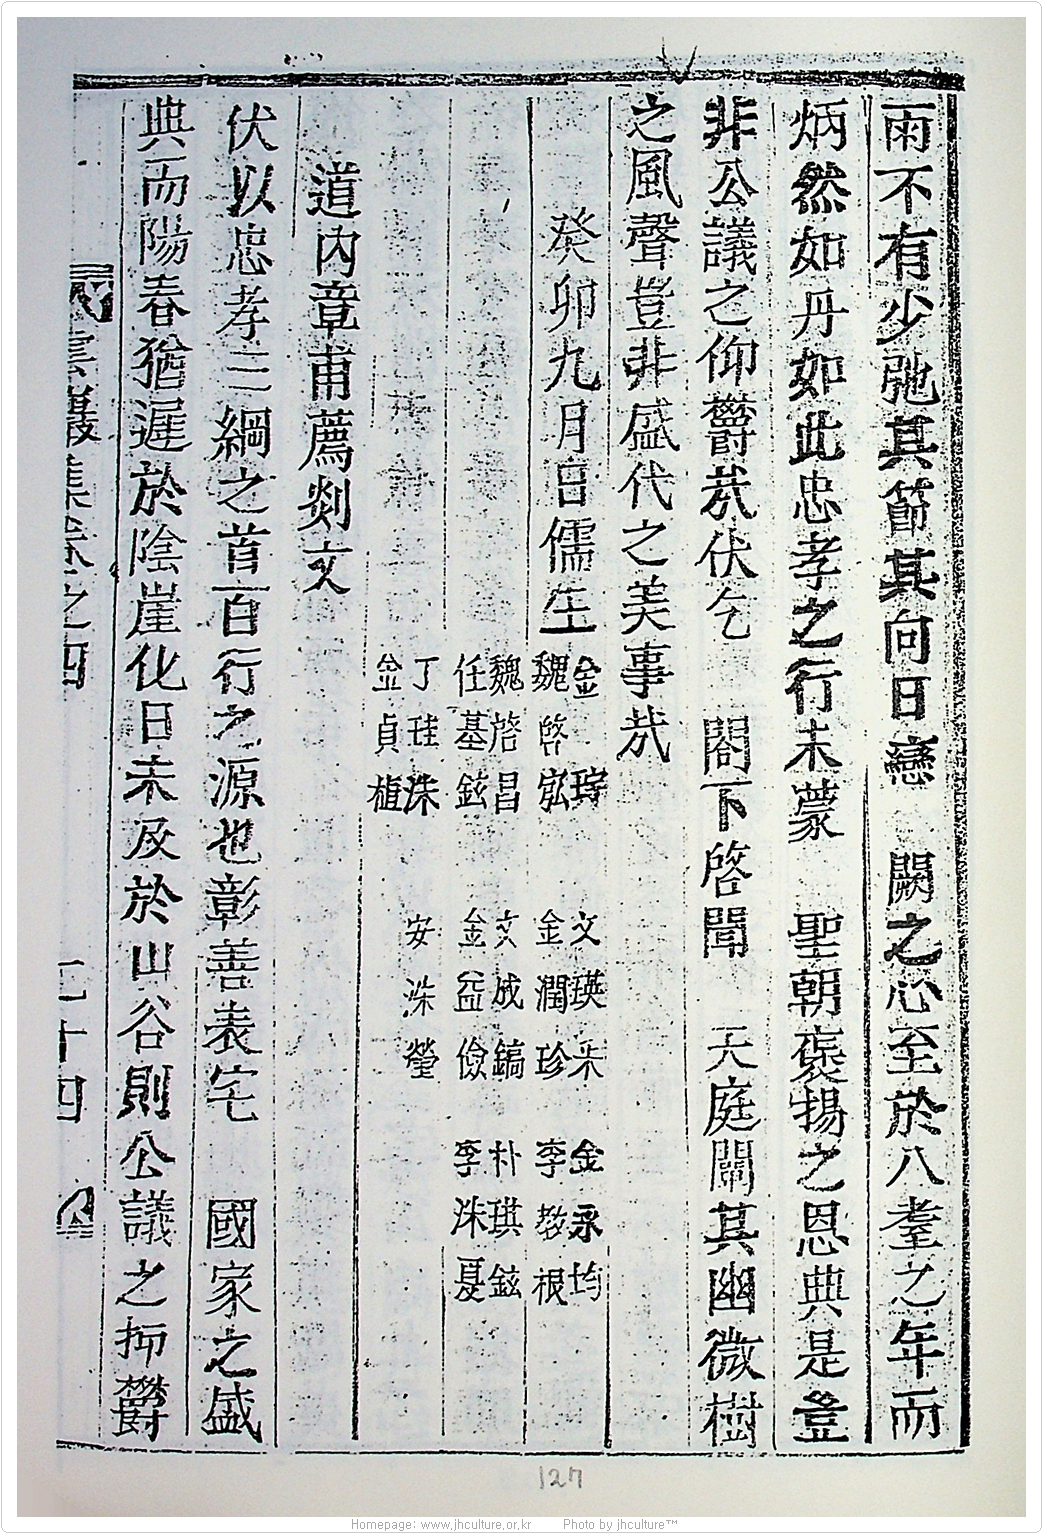 雨不有少弛其節其向日戀　闕之心至於八耋之年而
炳然如丹如此忠孝之行未蒙　聖朝褒揚之恩典是豈
非公議之仰鬱㢤伏乞　閤下啓聞　天庭闡其幽微樹
之風聲豈非盛代之美事㢤
癸卯九月日儒生
金　文瑛采　金永均
魏啓泓　金潤珍　李敎根
魏啓昌　文成鎬　朴琪鉉
任基鉉　金益儉　李洙夏
丁珪洙　安洙瑩
金貞植
道內章甫薦剡文
伏以忠孝三綱之首百行之源也彰善表宅　國家之盛
典而陽春猶遲於陰崖化日未及於山谷則公議之抑鬱
雲巖集卷之四　二十四
127
Homepage: www.jhculture.or.kr　Photo by jhculture™